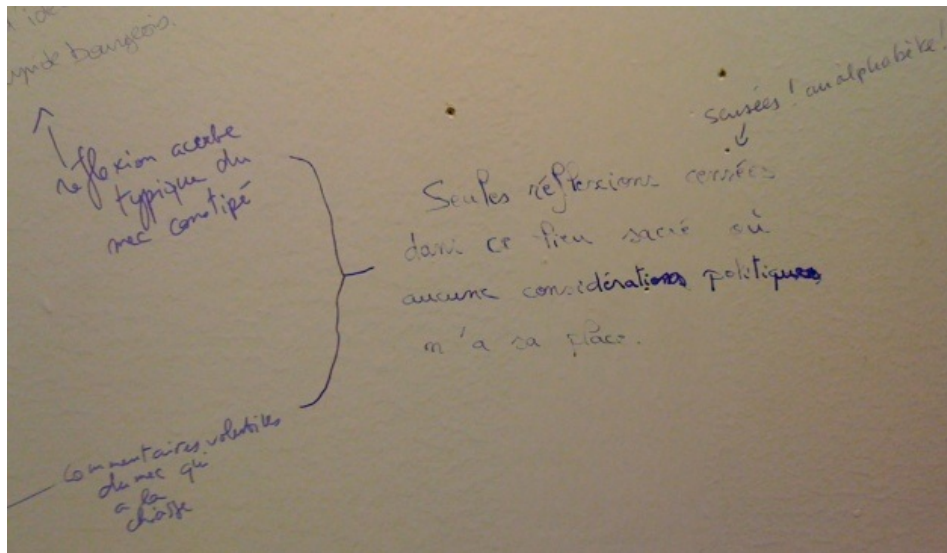 bourgeois.
réflexion acerbe
typique du
mec constipé
sensées ! analphabète !
Seules réflexions censées
dans ce lieu sacré où
aucune considérations politiques
n'a sa place.
commentaires volubiles
du mec qui
a la
chiasse